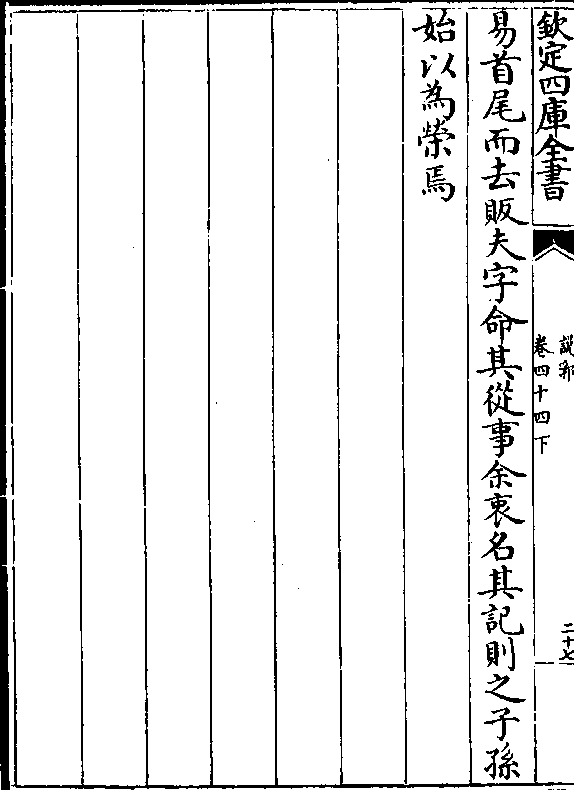 欽定四庫全書
說郛
卷四十四下
二十七
易首尾而去販夫字命其從事余衷名其記則之子孫
始以為榮焉